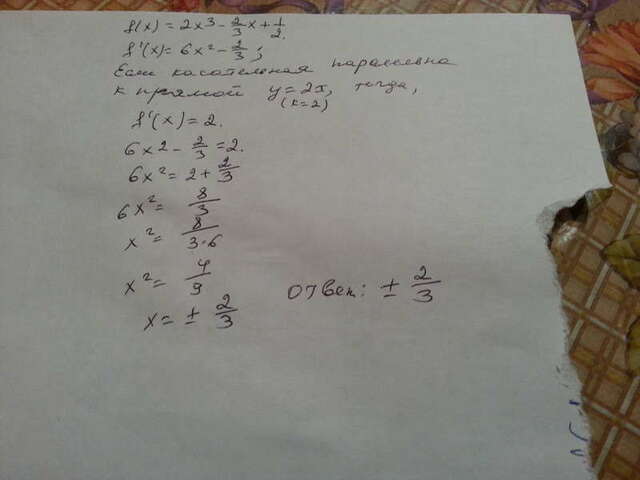 f(x) = 2x³ - 2/3 x + 1/2.
f'(x) = 6x² - 2/3;
Если касательная параллельна
к прямой y = 2x, тогда,
(k=2)
f'(x) = 2.
6x2 - 2/3 = 2.
6x² = 2 + 2/3
6x² = 8/3
x² = 8/3·6
x² = 4/9
x = ± 2/3
ответ: ± 2/3